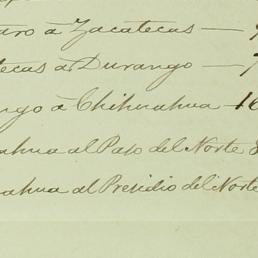 taro à Zacatecas —
tecas à Durango — 7
ngo à Chihuahua — 16
ahua al Paso del Norte
ahua al Presidio del Norte